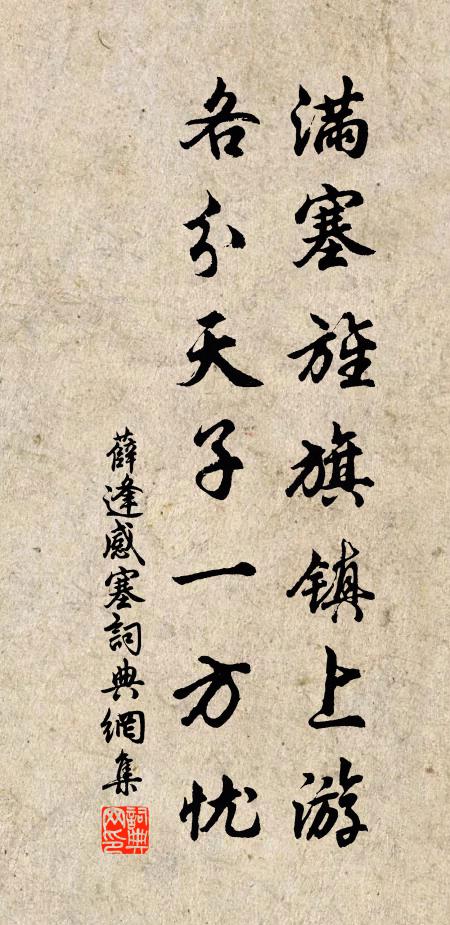 满塞旌旗镇上游
各分天子一方忧
薛逢感塞詞典網集
詞典网印